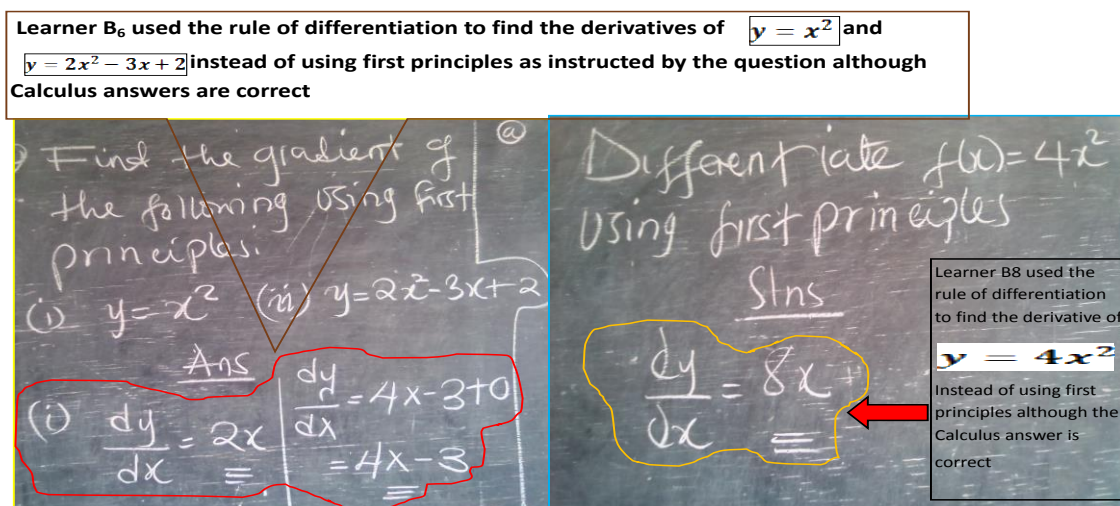 Learner B₆ used the rule of differentiation to find the derivatives of y = x² and
y = 2x² − 3x + 2 instead of using first principles as instructed by the question although
Calculus answers are correct
Find the gradient of
the following using first
principles.
(i) y = x² (ii) y = 2x² - 3x + 2
Ans
(i) dy/dx = 2x
dy/dx = 4x - 3 + 0
= 4x - 3
(a)
Differentiate f(x) = 4x²
using first principles
Slns
dy/dx = 8x
Learner B8 used the
rule of differentiation
to find the derivative of
y = 4x²
Instead of using first
principles although the
Calculus answer is
correct